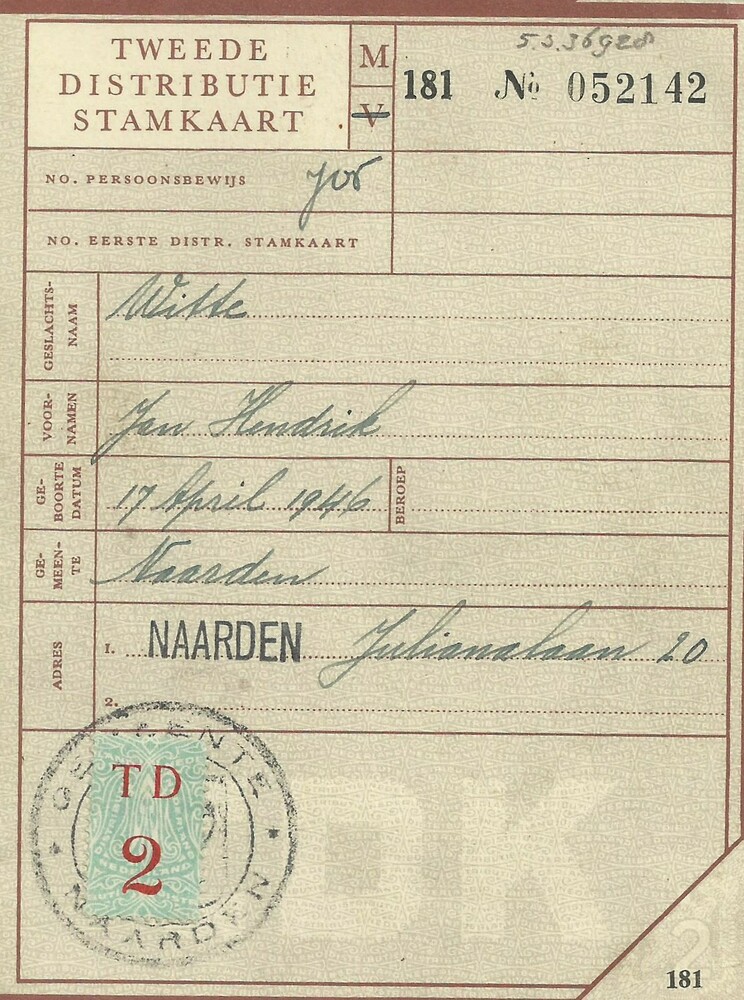 TWEEDE
DISTRIBUTIE
STAMKAART
M
V
181 No 052142
NO. PERSOONSBEWIJS
NO. EERSTE DISTR. STAMKAART
GESLACHTS-
NAAM
Witte
VOOR-
NAMEN
Jan Hendrik
GE-
BOORTE
DATUM
17 April 1946
BEROEP
GE-
MEEN-
TE
Naarden
ADRES
1. NAARDEN Julianalaan 20
2.
GEMEENTE
NAARDEN
TD
2
181